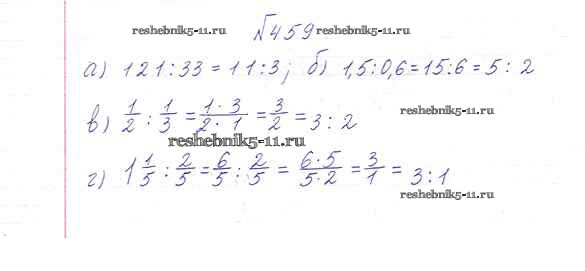 №459
reshebnik5-11.ru reshebnik5-11.ru
а) 121:33 = 11:3; б) 1,5:0,6=15:6=5:2
в) 1/2 : 1/3 = 1·3/2·1 = 3/2 = 3:2
reshebnik5-11.ru
reshebnik5-11.ru
г) 1 1/5 : 2/5 = 6/5 : 2/5 = 6·5/5·2 = 3/1 = 3:1
reshebnik5-11.ru